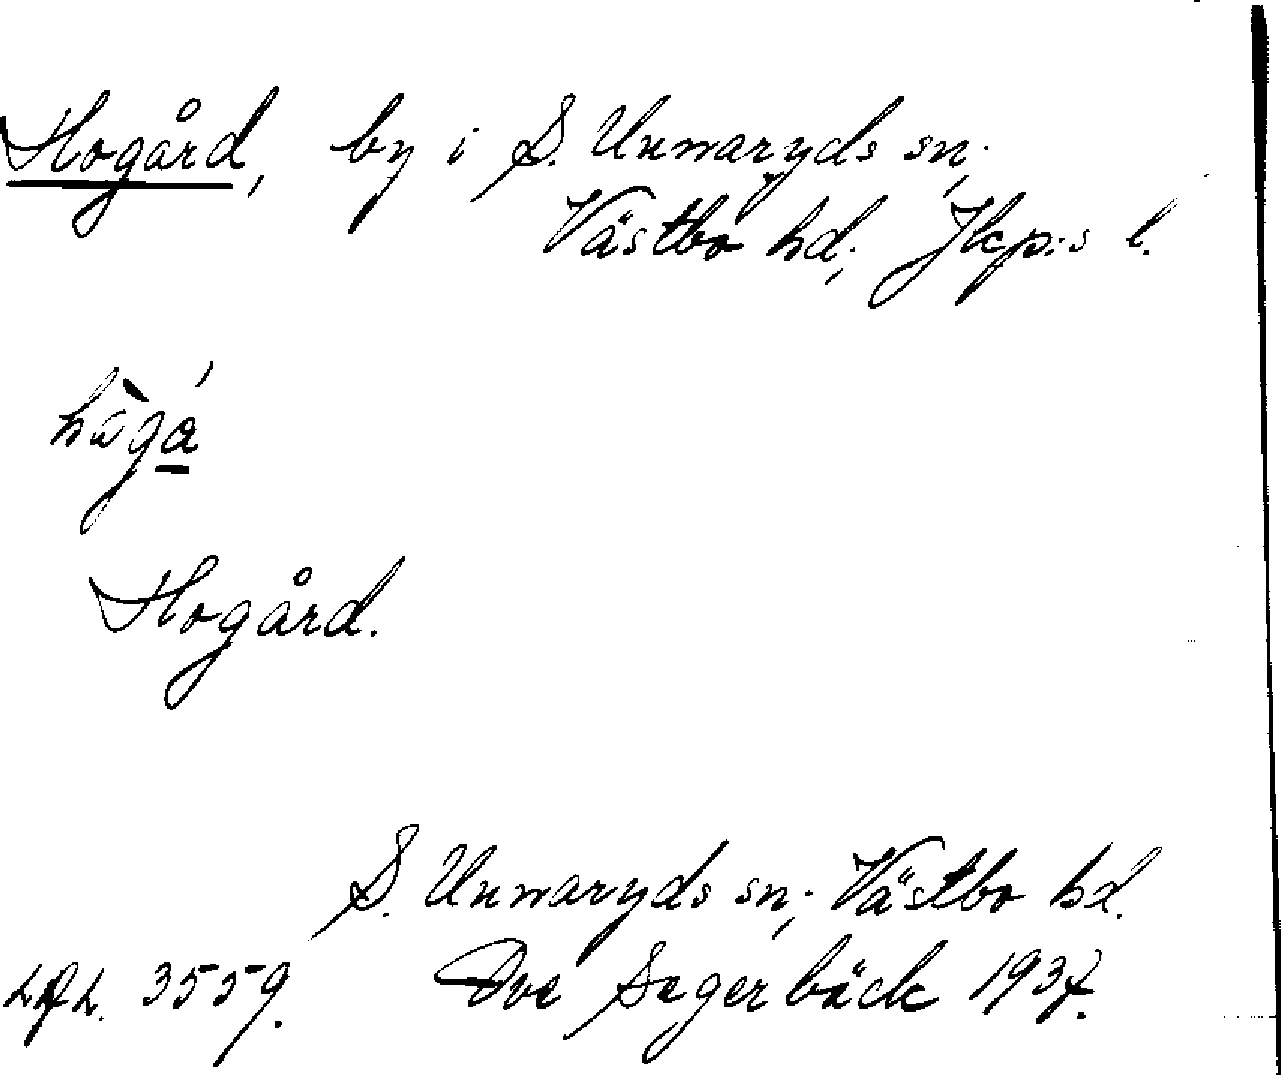 Hogård, by i S. Unnaryds sn;
Västbo hd; Jkp:s l.
Hogård.
S. Unnaryds sn; Västbo hd.
3559. Ove Segerbäck 1937.